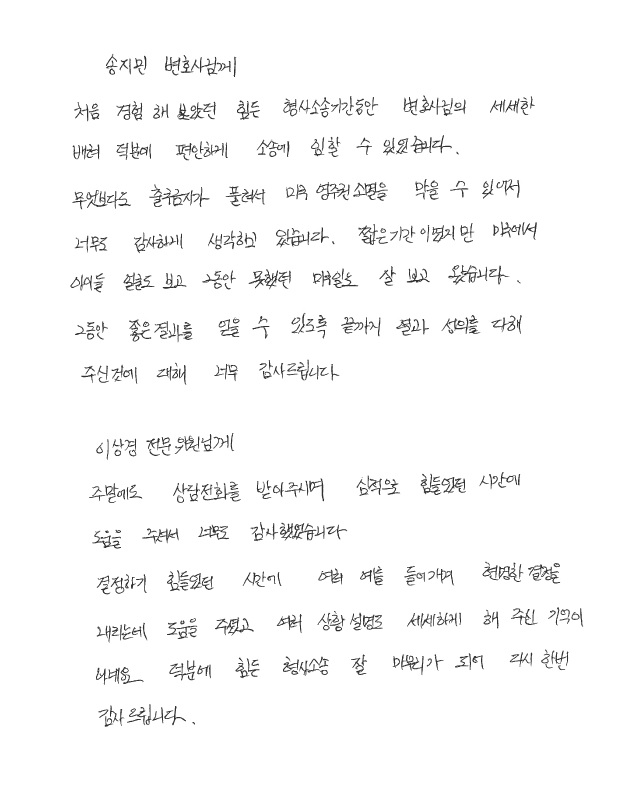 송지민 변호사님께
처음 경험 해 보았던 힘든 형사소송기간동안 변호사님의 세세한
배려 덕분에 편안하게 소송에 임할 수 있었습니다.
무엇보다도 출국금지가 풀려서 미국 영주권 소멸을 막을 수 있어서
너무도 감사하게 생각하고 있습니다. 짧은기간 이였지만 미국에서
아이들 얼굴도 보고 그동안 못했던 미국일도 잘 보고 왔습니다.
그동안 좋은결과를 얻을 수 있도록 끝까지 열과 성의를 다해
주신것에 대해 너무 감사드립니다
이상경 전문위원님께
주말에도 상담전화를 받아주시며 심적으로 힘들었던 시간에
도움을 주셔서 너무도 감사했었습니다
결정하기 힘들었던 시간에 여러 예를 들어가며 현명한 결정을
내리는데 도움을 주셨고 여러 상황 설명도 세세하게 해 주신 기억이
나네요 덕분에 힘든 형사소송 잘 마무리가 되어 다시 한번
감사드립니다.